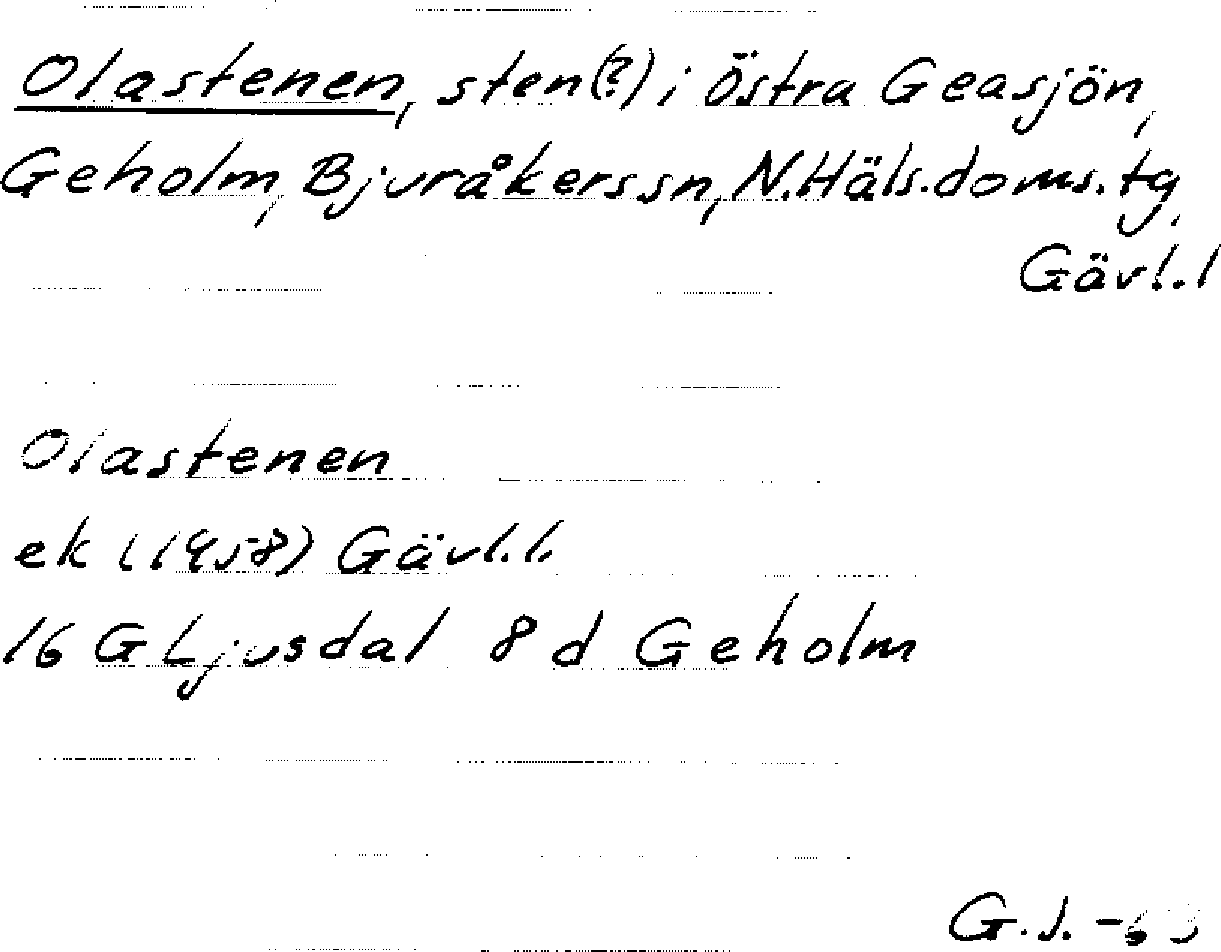 Olastenen, sten(?) i Östra Geasjön,
Geholm, Bjuråkers sn, N. Häls. doms. tg,
Gävl. l
Olastenen
ek (1958) Gävl. l.
16 G Ljusdal 8 d Geholm
G. J. -63